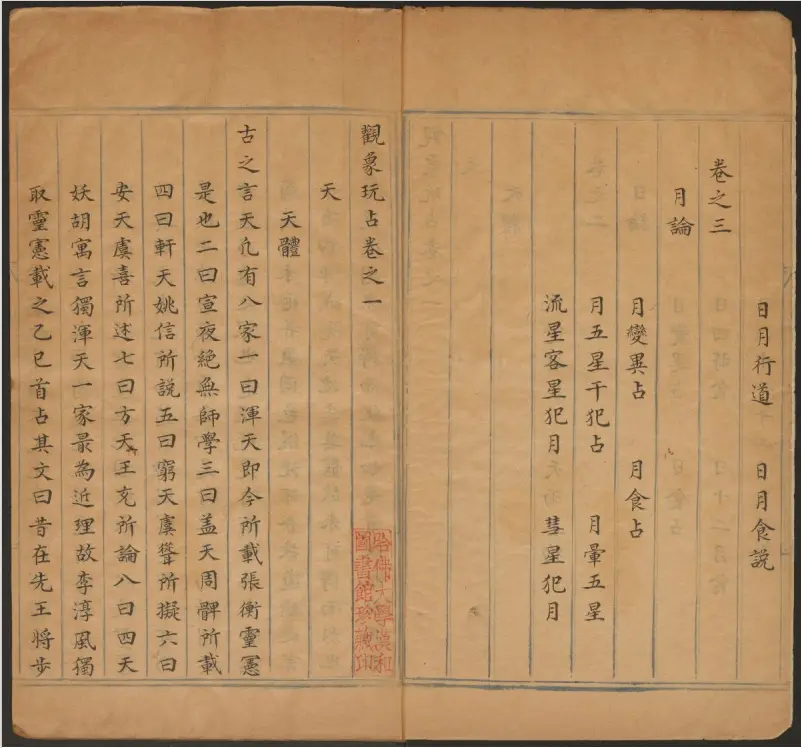 日月行道 日月食說
卷之三
月論
月變異占 月食占
月五星干犯占 月暈五星
流星客星犯月 彗星犯月
觀象玩占卷之一
天
天體
古之言天凢有八家一曰渾天即今所載張衡靈憲
是也二曰宣夜絕無師學三曰盖天周髀所載
四曰軒天姚信所說五曰窮天虞聳所擬六曰
安天虞喜所述七曰方天王充所論八曰四天
妖胡寓言獨渾天一家最為近理故李淳風獨
取靈憲載之乙巳首占其文曰昔在先王將步
哈佛大學漢和
圖書館珍藏印